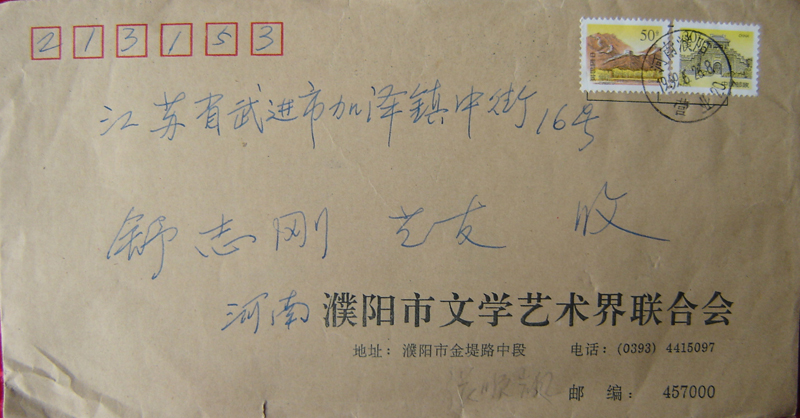 213153
50分
河南濮阳
江苏省武进市加泽镇中街16号
舒志刚 艺友 收
河南 濮阳市文学艺术界联合会
地址：濮阳市金堤路中段 电话：(0393) 4415097
邮 编： 457000